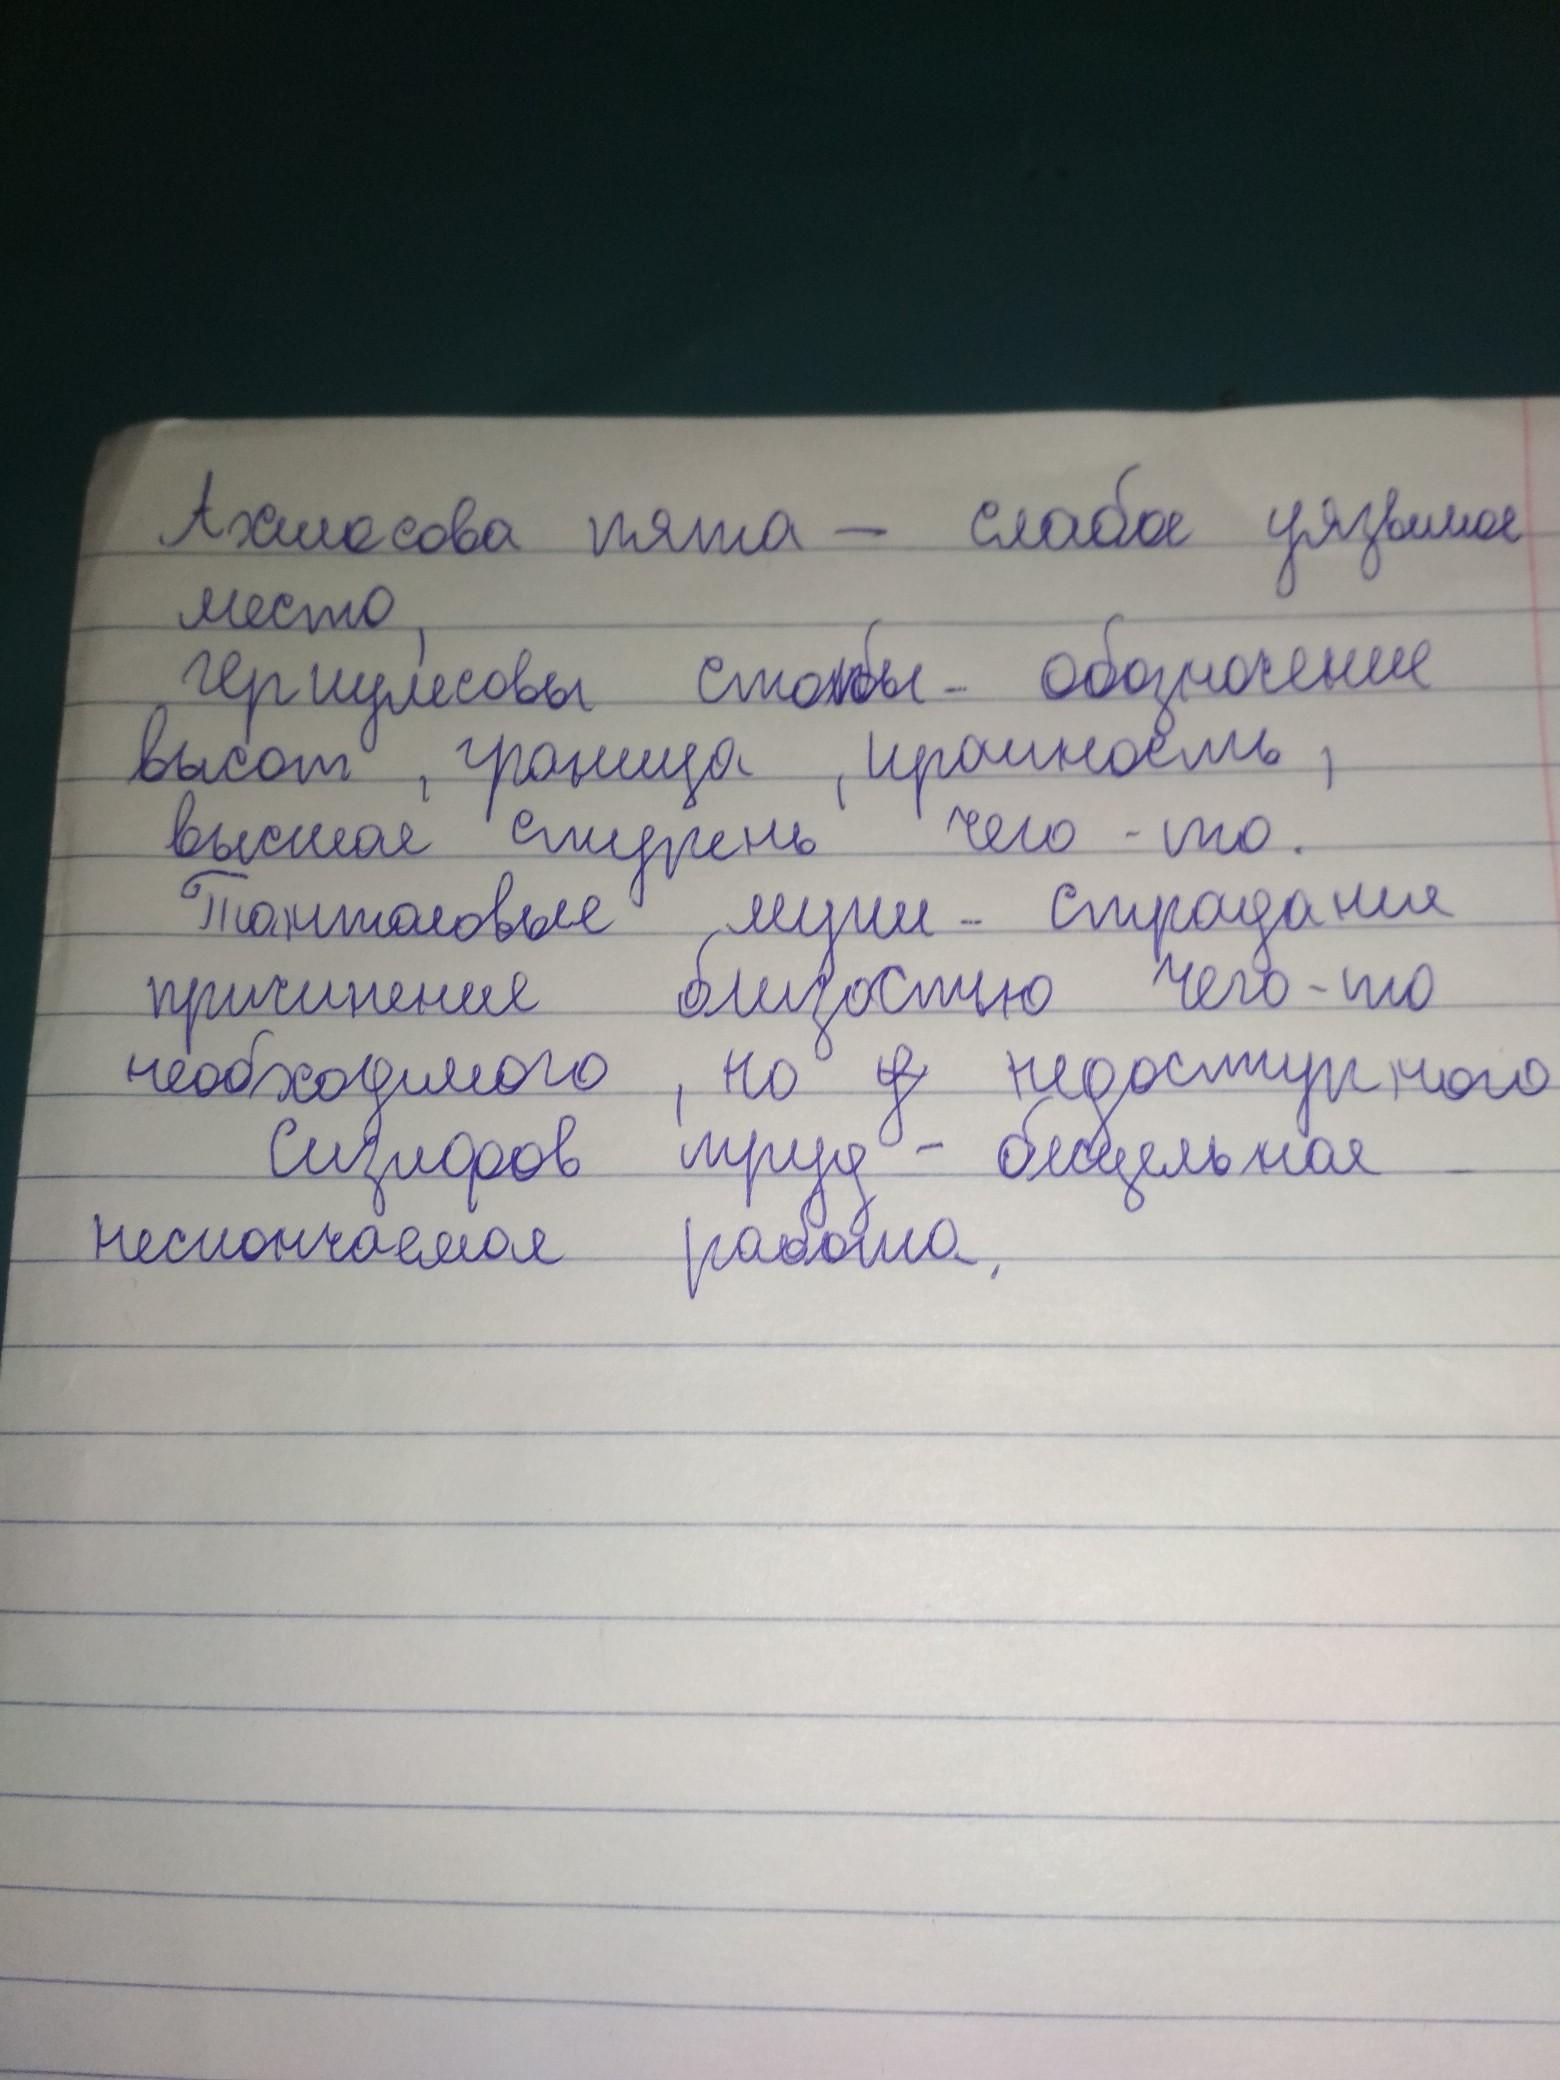 Ахиласова пята — слабое уязвимое
место,
геркулесовы столбы - обозначение
высот, граница, крайность,
высшая ступень чего-то.
Танталовые муки - страдания
причинение близостью чего-то
необходимого, но недоступного
Сизифов труд - бесцельная -
нескончаемая работа,